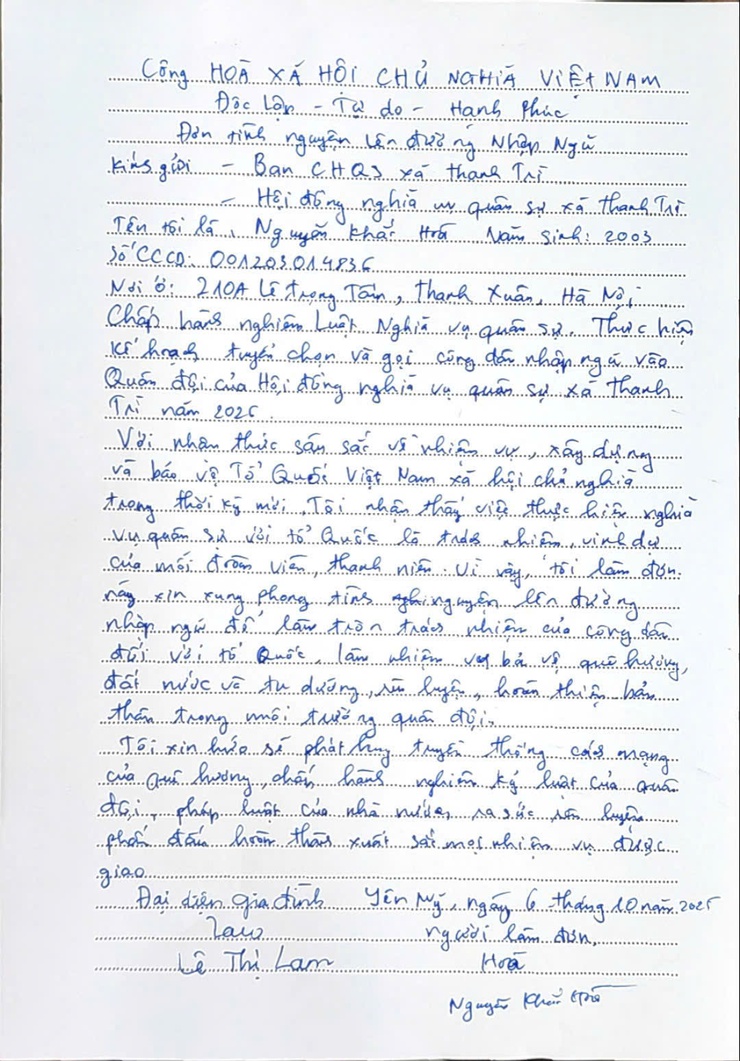 Cộng HOÀ XÃ HỘI CHỦ NGHĨA VIỆT NAM
Độc Lập - Tự do - Hạnh Phúc
Đơn tình nguyện lên đường Nhập Ngũ
Kính gửi - Ban CHQS xã thanh Trì
- Hội đồng nghĩa vụ quân sự xã thanh Trì
Tên tôi là, Nguyễn Khắc Hoá Năm sinh: 2003
Số CCCD: 001203014836
Nơi ở: 210A Lê trọng Tấn, Thanh Xuân, Hà Nội
Chấp hành nghiêm Luật Nghĩa vụ quân sự. Thực hiện
Kế hoạch tuyển chọn và gọi công dân nhập ngũ vào
Quân đội của Hội đồng nghĩa vụ quân sự xã thanh
Trì năm 2026.
Với nhận thức sâu sắc về nhiệm vụ, xây dựng
và bảo vệ Tổ Quốc Việt Nam xã hội chủ nghĩa
trong thời kỳ mới, Tôi nhận thấy việc thực hiện nghĩa
vụ quân sự với tổ Quốc là trách nhiệm, vinh dự
của mỗi đoàn viên, thanh niên. Vì vậy, tôi làm đơn
này xin xung phong tình nguyện lên đường
nhập ngũ để làm tròn trách nhiệm của công dân
đối với tổ Quốc, làm nhiệm vụ bả vệ quê hương,
đất nước và tu dưỡng, rèn luyện, hoàn thiện bản
thân trong môi trường quân đội.
Tôi xin hứa sẽ phát huy truyền thống cách mạng
của quê hương, chấp hành nghiêm kỷ luật của quân
đội, pháp luật của nhà nước, ra sức rèn luyện
phấn đấu hoàn thành xuất sắc mọi nhiệm vụ được
giao
Đại diện gia đình Yên Mỹ, ngày 6 tháng 10 năm 2025
Lam người làm đơn,
Lê Thị Lam Hoá
Nguyễn Khắc Hoá